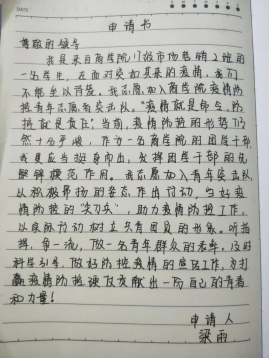 申请书
尊敬的领导
我是来自商学院17级市场营销2班的
一名学生，在面对突如其来的疫情，我们
不能坐以待毙。我志愿加入商学院疫情防
控青年志愿者突击队。"疫情就是命令，防
控就是责任"当前，疫情防控的形势仍
然十分严峻，作为一名商学院的团学干部
我更应当挺身而出，发挥团学干部的先
锋模范作用。我志愿加入青年突击队
以积极昂扬的姿态作出行动，当好疫
情防控的"尖刀兵"，助力疫情防控工作，
以实际行动树立久青团员的形象。听指
挥，争一流，做一名青年群众的表率，及时
科学引导，做好防控疫情的宣传工作，为打
赢疫情防控硬仗贡献出一份自己的青春
和力量！
申请人
梁雨